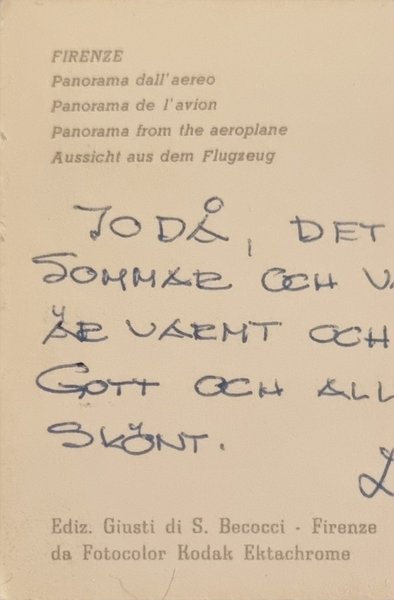 FIRENZE
Panorama dall'aereo
Panorama de l'avion
Panorama from the aeroplane
Aussicht aus dem Flugzeug
JODÅ, DET
SOMMAR OCH
ÄR VARMT OCH
GOTT OCH ALL
SKÖNT.
Ediz. Giusti di S. Becocci - Firenze
da Fotocolor Kodak Ektachrome